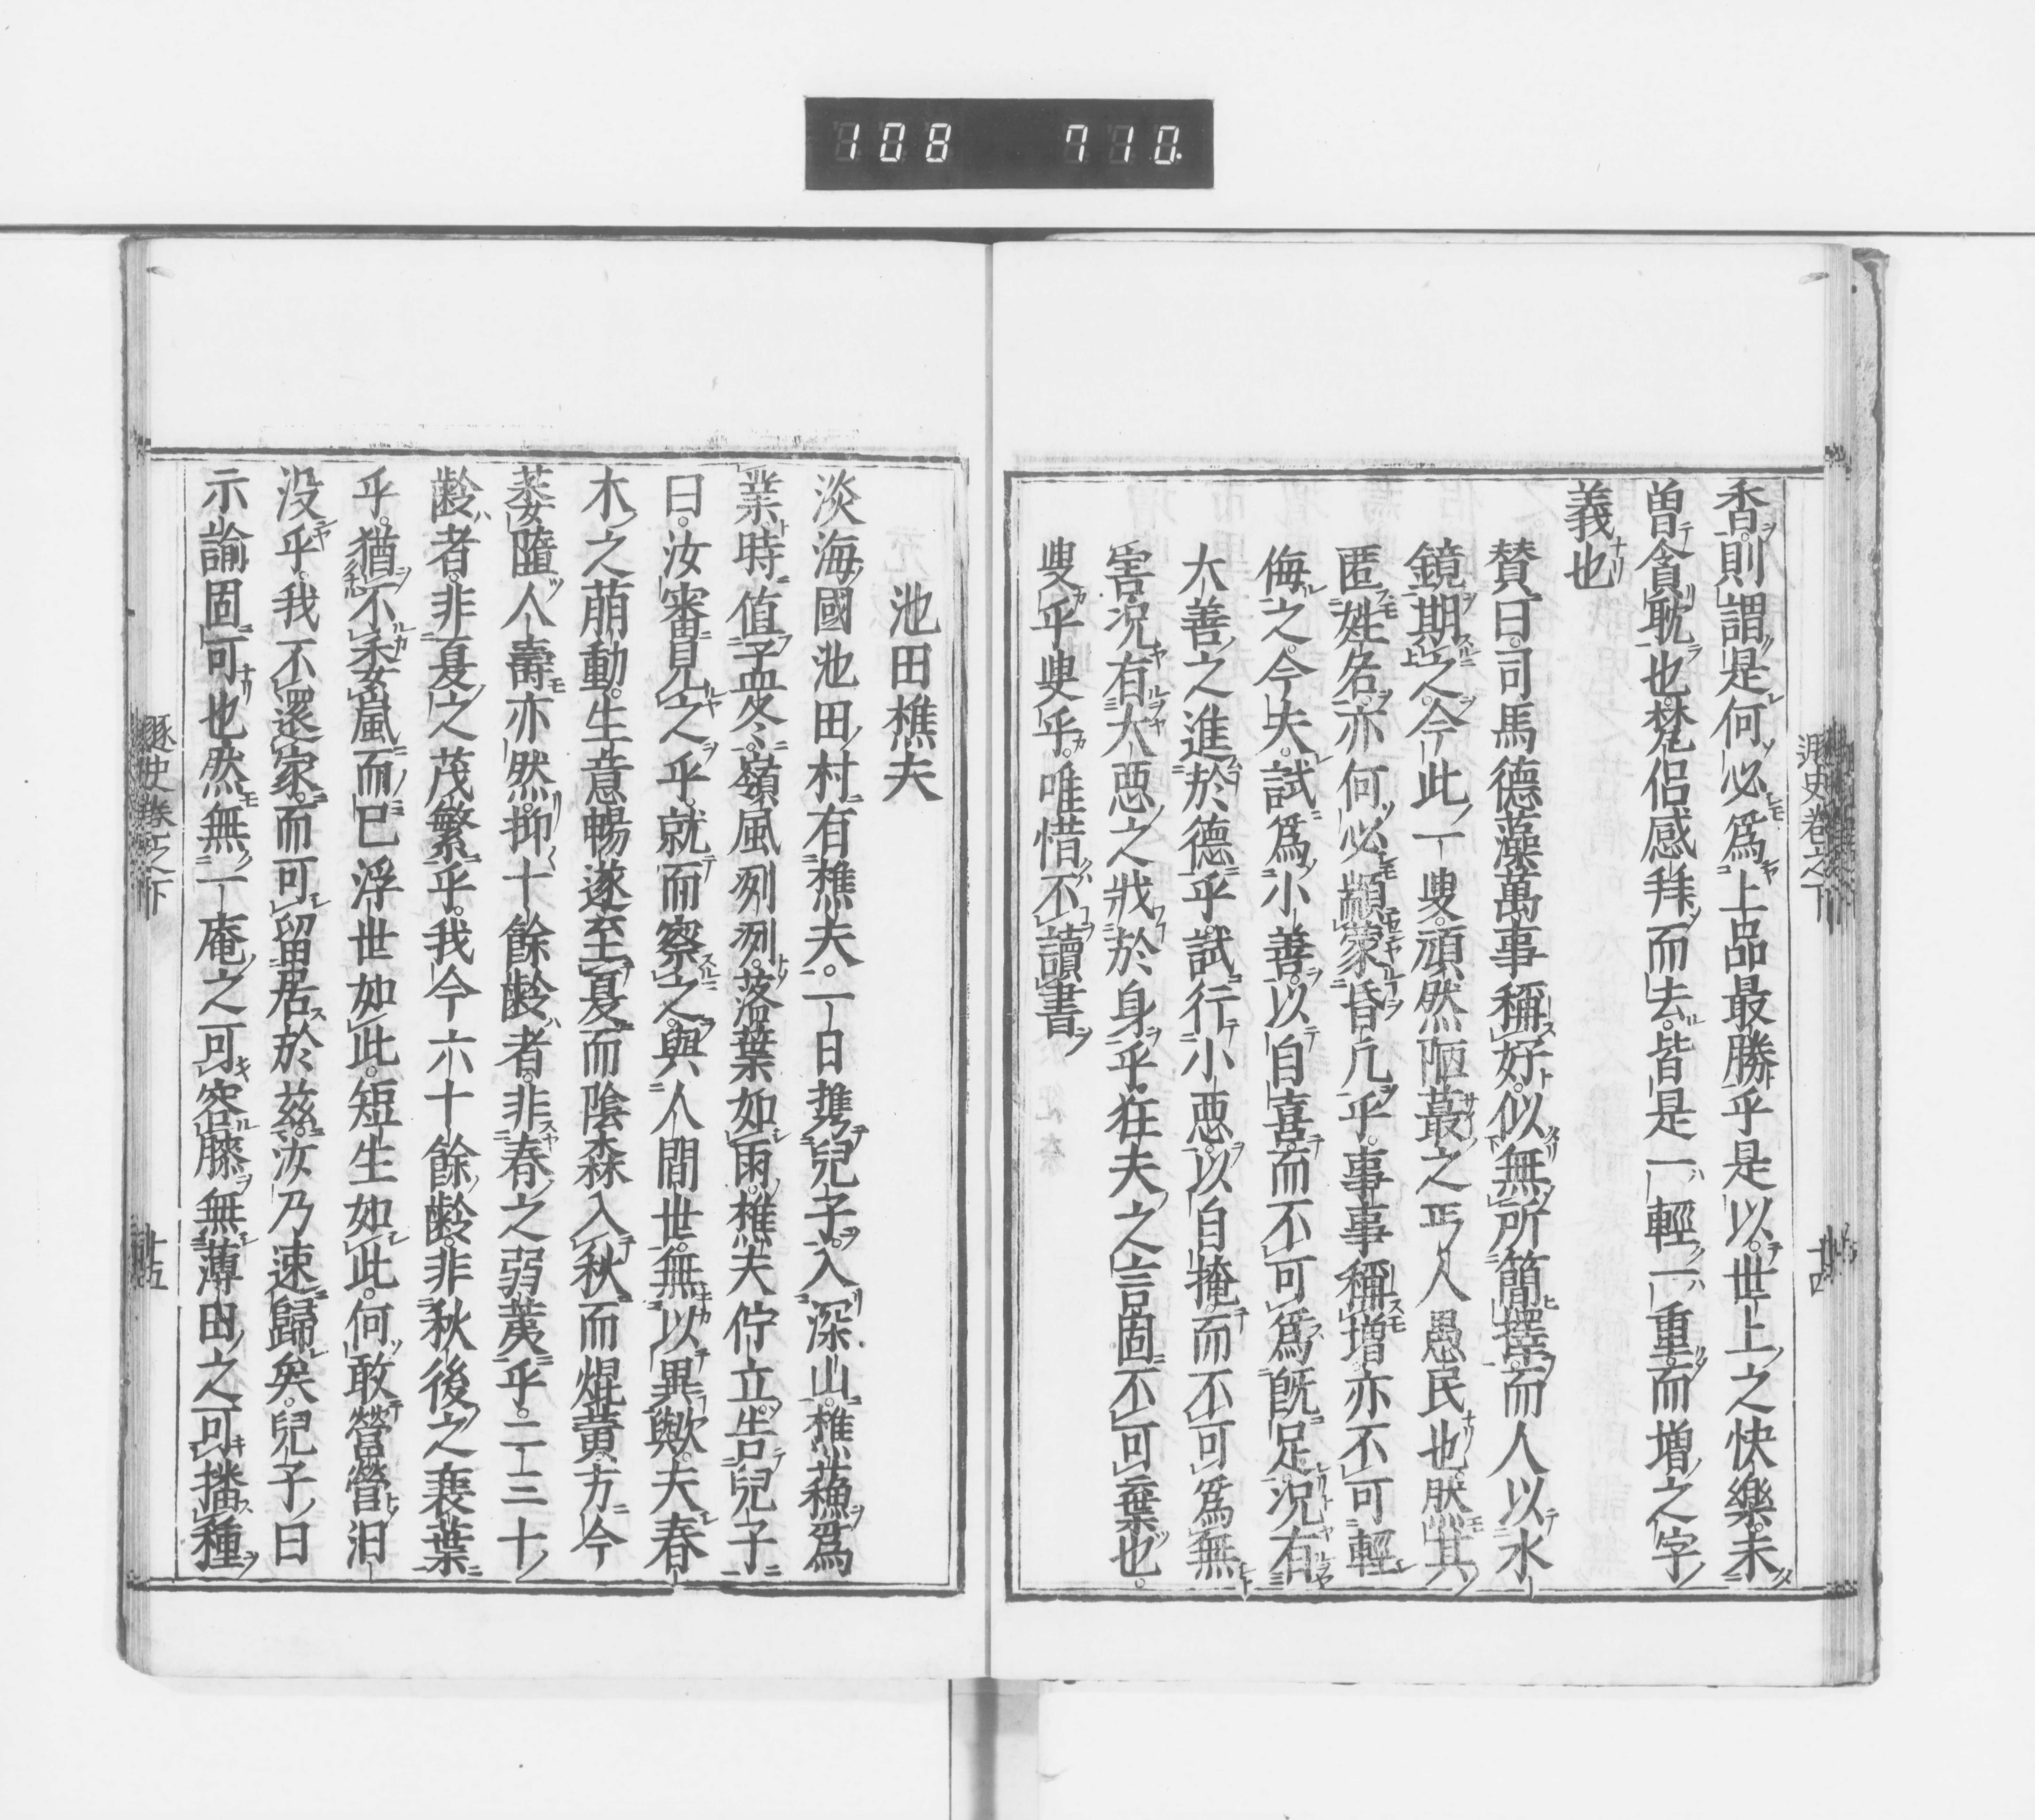 108 710.
遯史卷之下 十四
香則謂是何必爲上品最勝乎是以世上之快樂未
曽貪耽也梵侶感拜而去。皆是一輕一重而增之字
義也
賛曰。司馬德藻萬事稱好。似無所簡擇而人以水
鏡期之。今此一叟。頑然陋蕞之丐人愚民也。然其
匿姓名。亦何必顓蒙昏凢乎。事事稱增亦不可輕
侮之。今夫試爲小善。以自喜而不可爲既足。況有
大善之進於德乎。試行小惡。以自掩而不可爲無
害。況有大惡之戕於身乎。狂夫之言固不可棄也。
叟乎叟乎。唯惜不讀書
池田樵夫
淡海國池田村有樵夫。一日携兒子。入深山。樵蘓爲
業。時值孟冬。嶺風冽冽。落葉如雨。樵夫佇立。告兒子
曰。汝審見之乎。就而察之。與人間世。無以異歟。夫春
木之萠動。生意暢遂至夏而陰森入秋而焜黄方今
萎隨人壽亦然。抑十餘齡者。非春之弱荑乎。二三十
齡者。非夏之茂繁乎。我今六十餘齡。非秋後之衰葉
乎。猶不禾嵐而已浮世如此。短生如此。何敢營營汨
没乎。我不還家。而可留居於茲。汝乃速歸矣。兒子曰
示諭固可也然無一庵之可容膝無薄田之可播種
遯史卷之下 十五